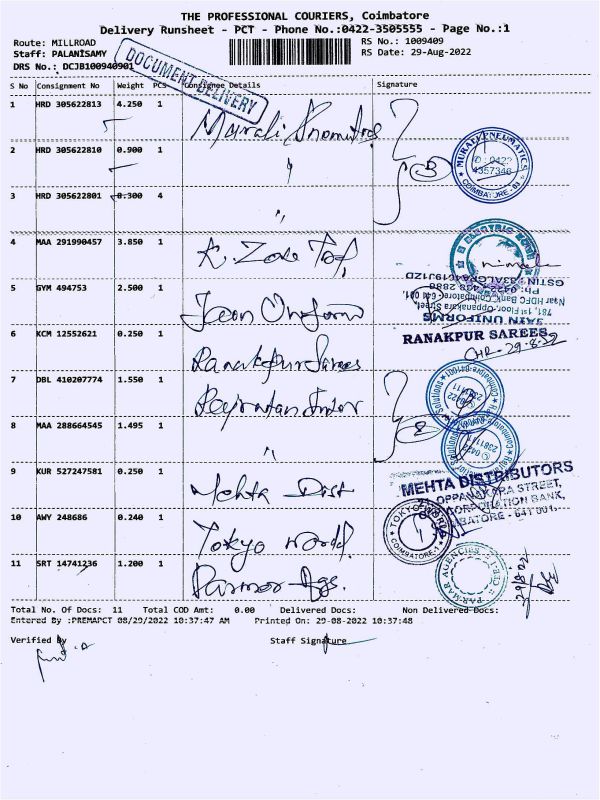 THE PROFESSIONAL COURIERS, Coimbatore
Delivery Runsheet - PCT - Phone No.:0422-3505555 - Page No.:1
Route: MILLROAD
RS No.: 1009409
Staff: PALANISAMY
RS Date: 29-Aug-2022
DRS No.: DCJB100940901
DOCUMENT DELIVERY
S No Consignment No Weight PCS Consignee Details Signature
1 HRD 305622813 4.250 1
2 HRD 305622810 0.900 1 "
MURALI PNEUMATICS
COIMBATORE
3 HRD 305622801 0.300 4 "
4 MAA 291990457 3.850 1
ELECTRIC
5 GYM 494753 2.500 1
GSTIN
Near HDFC Bank, Coimbatore-641 001.
781, 1st Floor, Oppanakara Street
JAIN UNIFORMS
6 KCM 12552621 0.250 1 Ranakpur Sarees RANAKPUR SAREES
29-8-22
7 DBL 410207774 1.550 1
8 MAA 288664545 1.495 1 "
9 KUR 527247581 0.250 1 Mehta Dist MEHTA DISTRIBUTORS
OPPANAKARA STREET,
CORPORATION BANK,
COIMBATORE - 641 001.
10 AWY 248686 0.240 1 Tokyo World. TOKYO WORLD
COIMBATORE-1
11 SRT 14741236 1.200 1 Parmar Ags. PARMAR AGENCIES
29/8/22
Total No. Of Docs: 11 Total COD Amt: 0.00 Delivered Docs: Non Delivered Docs:
Entered By :PREMAPCT 08/29/2022 10:37:47 AM Printed On: 29-08-2022 10:37:48
Verified By Staff Signature